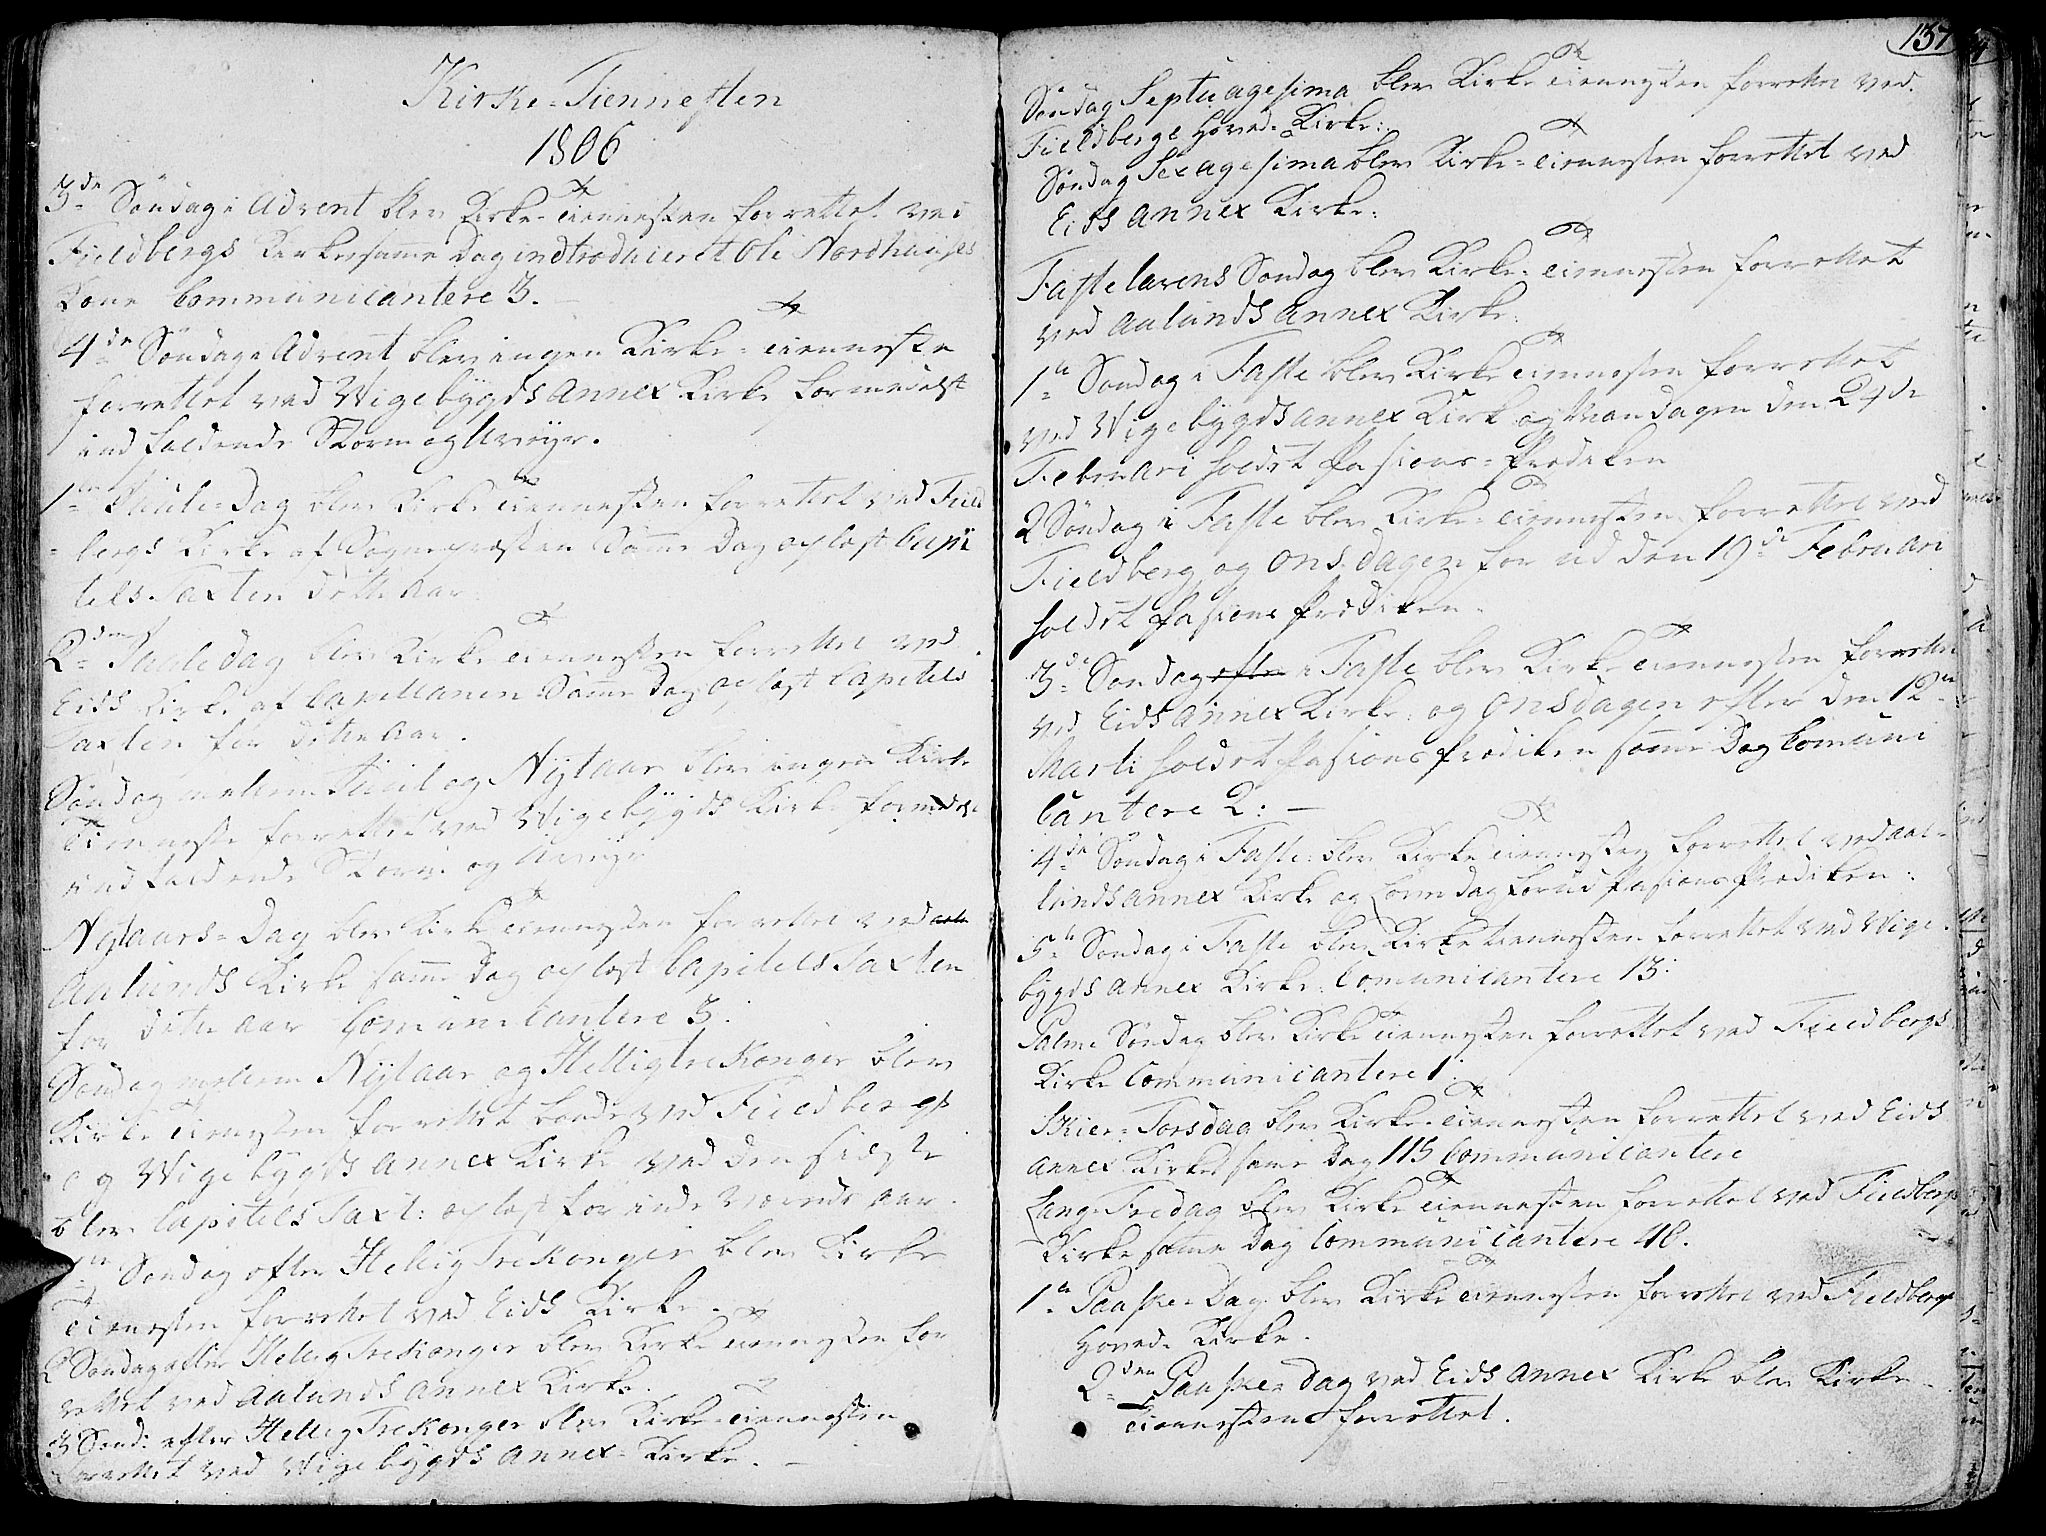 Kirke-Tiennesten
1806
3de Søndag i Advent blev Kirke-tiennesten forrettet ved
Fieldbergs Kirke samme Dag indtroduceret Ole Nordhuuses
Kone Communicantere 3.
4de Søndag i Advent blev ingen Kirke-tienneste
forrettet ved Wigebygds Annex Kirke formedelst
indfaldende Storm og Uveyr.
1te Juule-Dag blev Kirke tiennesten forrettet ved Field
bergs Kirke af Sognepresten samme Dag oplæst Capi
tels Taxten dette Aar.
2den Juuledag blev Kirke tiennesten forrettet ved
Eids Kirke af Capellanen samme Dag oplæst Capitels
Taxten for dette Aar.
Søndag mellem Juul og Nytaar blev ingen Kirke
tienneste forrettet ved Wigebygds Kirke formedelst
indfaldende Storm og Uveyr
Nytaars-Dag blev Kirke tiennesten forrettet ved
Aalunds Kirke samme Dag oplæst Capitels Taxten
for dette Aar Comunicantere 3.
Søndag mellem Nytaar og Helligtrekonger blev
Kirke tiennesten forrettet baade ved Fieldbergs
og Wigebygds Annex Kirke ved den sidste
blev Capitels Taxt: oplæst for indeværende Aar.
Søndag efter Hellig Trekonger blev Kirke
tiennesten forrettet ved Eids Kirke.
2 Søndag efter Hellig Trekonger blev Kirke tiennesten for
rettet ved Aalunds Annex Kirke.
3 Sønd: efter Hellig Trekonger blev Kirke-tiennesten
forrettet ved Wigebygds Annex-Kirke.
137
Søndag Septuagesima blev Kirke tiennesten forrettet ved
Fieldbergs Hoved-Kirke:
Søndag Sexagesima blev Kirke-tiennesten forrettet ved
Eids Annex Kirke:
Fastelavens Søndag blev Kirke-tiennesten forrettet
ved Aalunds Annex Kirke:
1te Søndag i Faste blev Kirke tiennesten forrettet
ved Wigebygds Annex Kirk og Mandagen den 24de
Februari holdet Pasions-Prediken
2 Søndag i Faste blev Kirke-tiennesten forrettet ved
Fieldberg og Onsdagen for ud den 19de Februari
holdet Pasions Prediken.
3de Søndag efter i Faste blev Kirke-tiennesten forrettet
ved Eids Annex Kirke: og Onsdagen efter den 12te
Marti holdet Pasions Prediken samme Dag Comuni
Cantere 2: -
4de Søndag i Faste: blev Kirke tiennesten forrettet ved Aal-
lunds Annex Kirke og Løverdag forud Pasions Prediken.
5te Søndag i Faste blev Kirke tiennesten forrettet ved Wige-
bygds Annex Kirke: Comunicantere 13:
Palme Søndag blev Kirke tiennesten forrettet ved Fieldbergs
Kirke Communicantere 1.
Skier-Torsdag blev Kirke-tiennesten forrettet ved Eids
Annex Kirke samme Dag 115 Communicantere
Lang-Fredag blev Kirke tiennesten forrettet ved Fieldbergs
Kirke samme Dag Communicantere 48.
1te Paaske-Dag blev Kirke tiennesten forrettet ved Fieldbergs
Hoved-Kirke.
2den Paaske-Dag ved Eids Annex Kirke blev Kirke-
tiennesten forrettet.